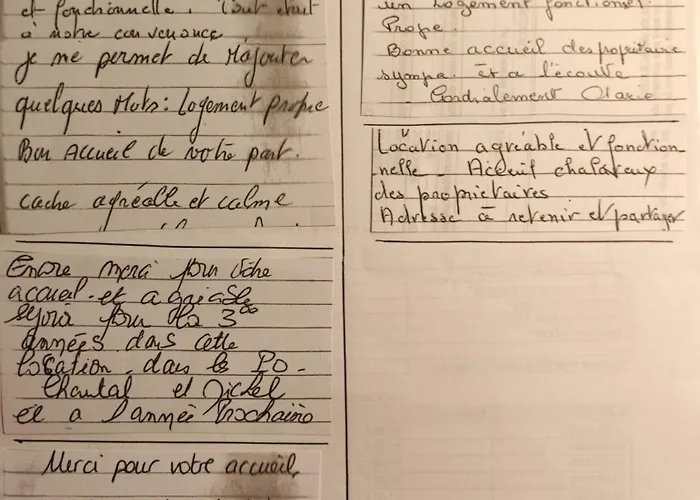 et fonctionnelle. Tout était
à notre convenance
je me permet de Rajouter
quelques Mots: Logement propre
Bon Accueil de votre part.
cache agréable et calme
Encore merci pour votre
accueil et agréable
séjour pour la 3
années dans cette
location dans le PO-
Chantal et Michel
et a l'année Prochaine
Merci pour votre accueil,
un logement fonctionnel
Propre.
Bonne accueil des propriétaire
sympa. et a l'écoute
Cordialement Marie
Location agréable et fonction
nelle - Acceuil chaleureux
des propriétaires
Adresse à retenir et partager